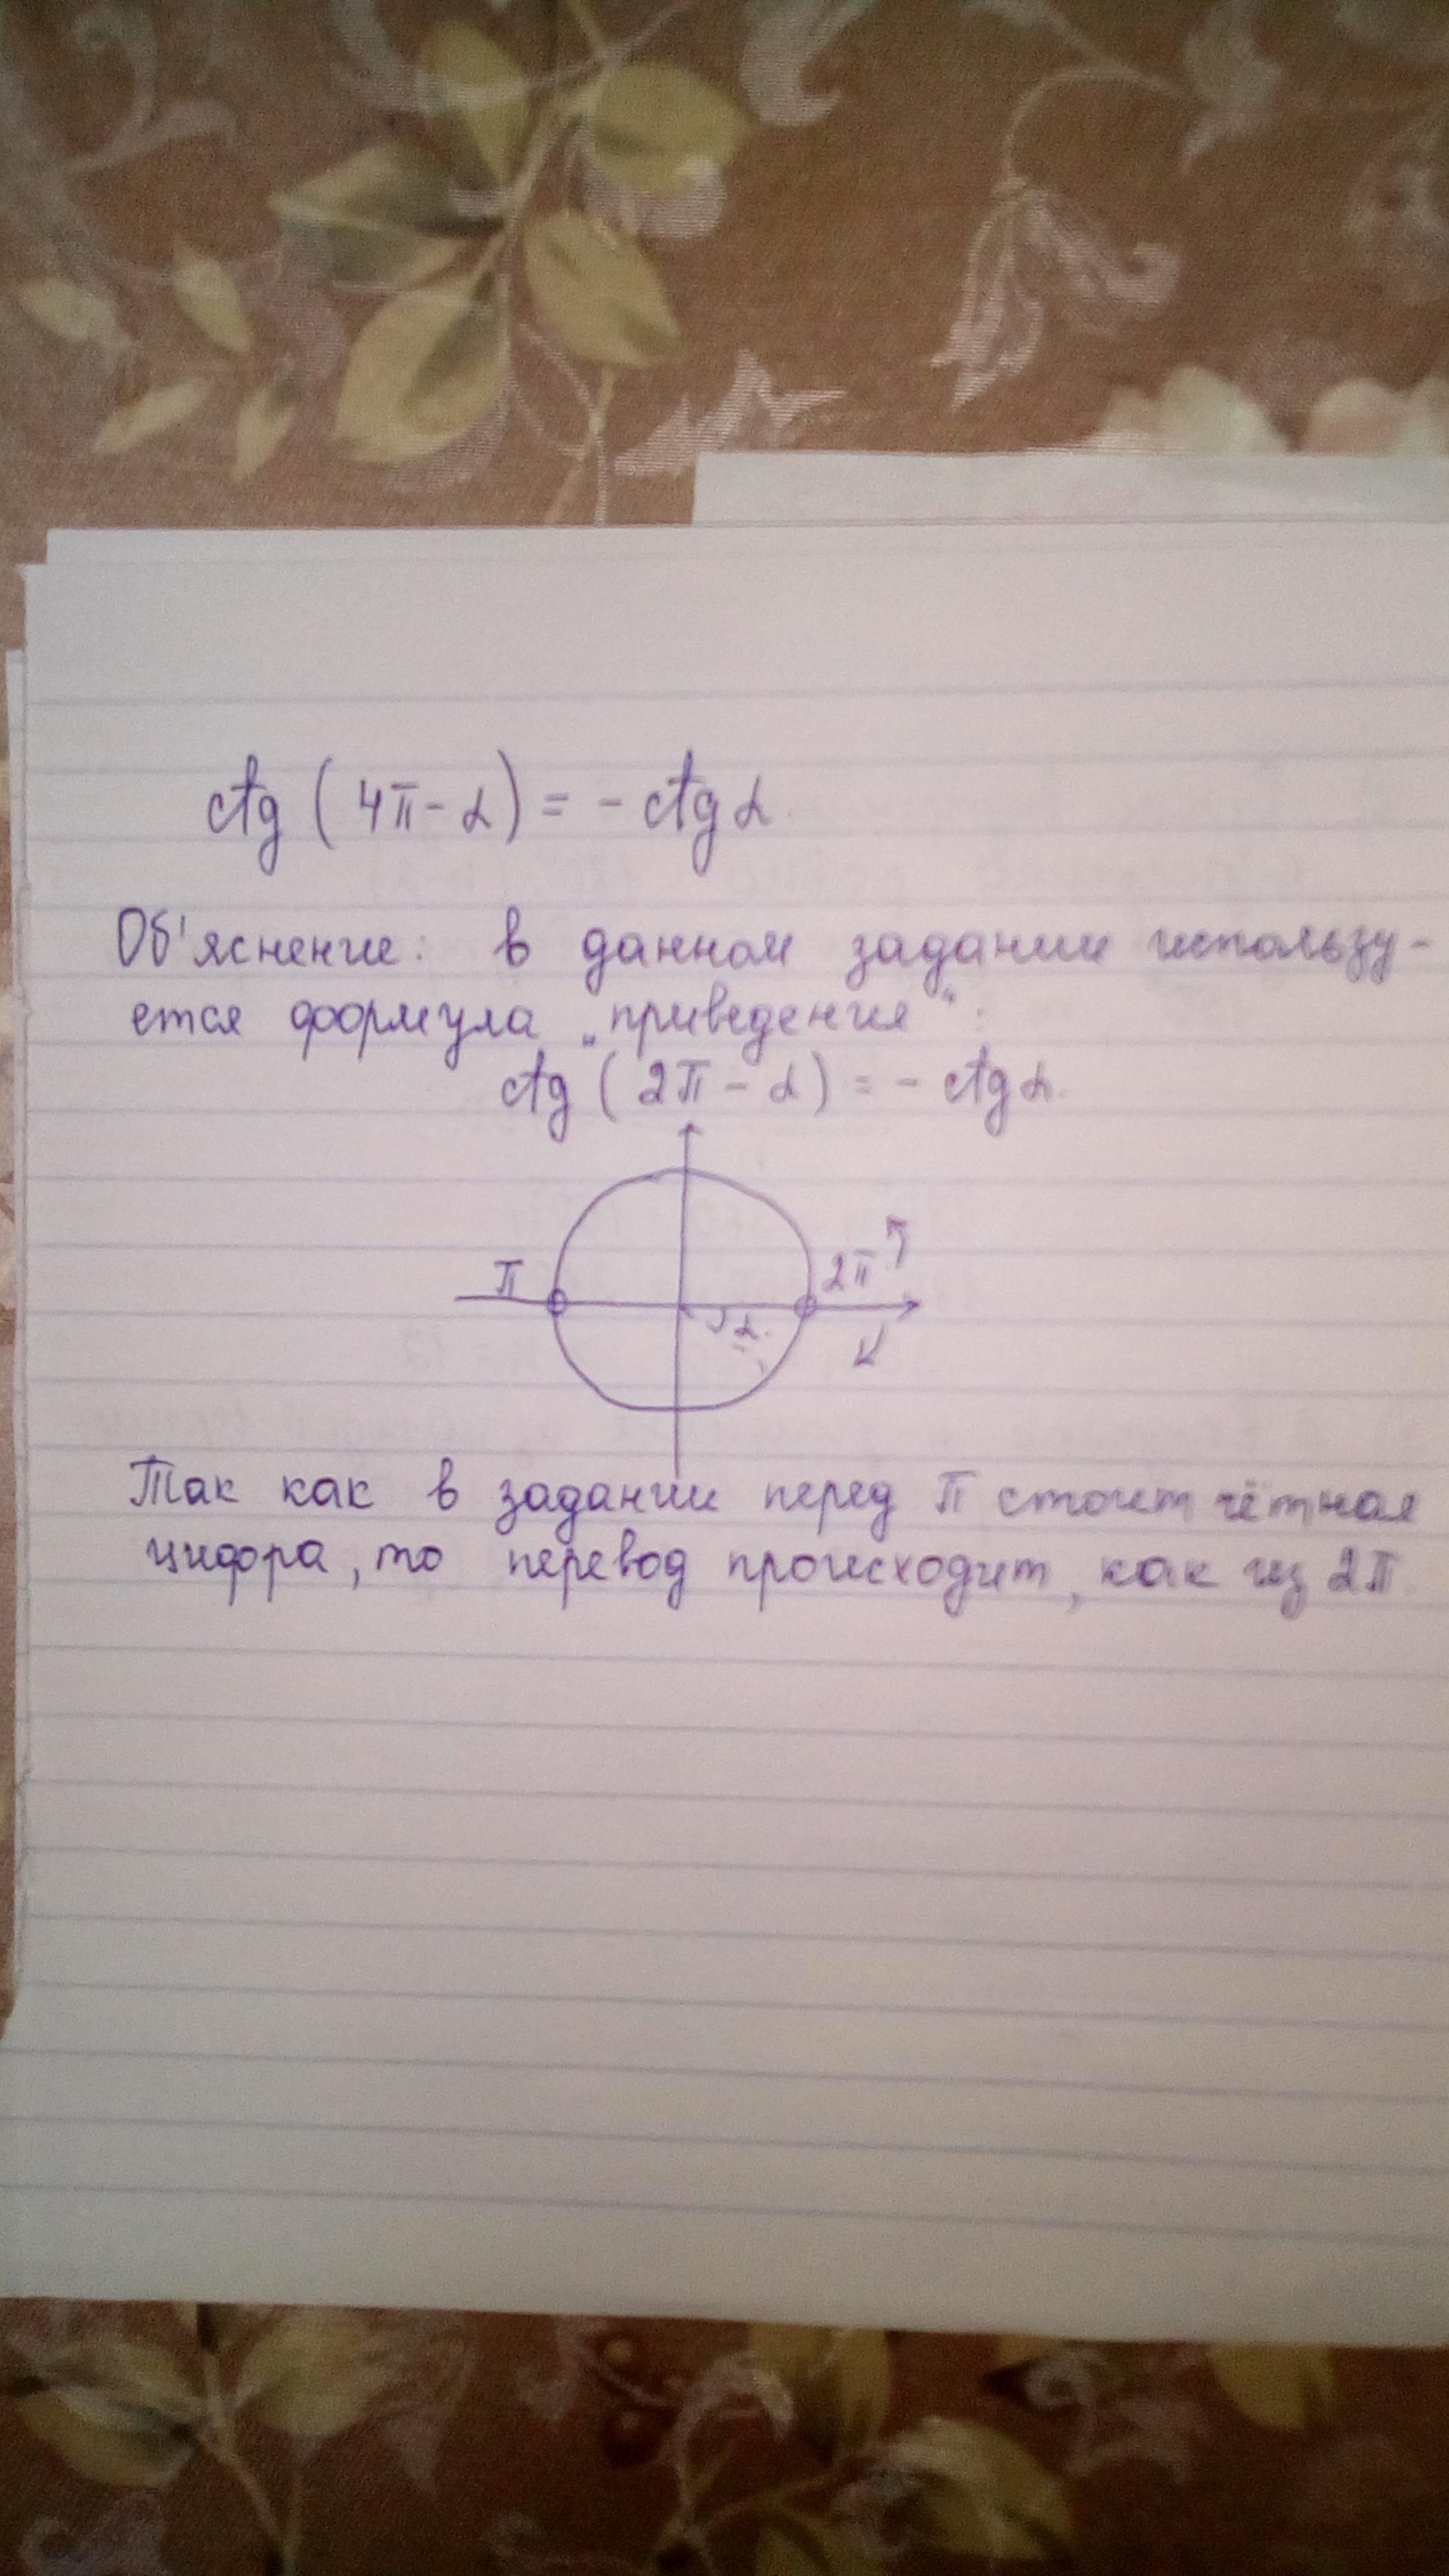 ctg (4π-α) = - ctg α.
Об'яснение: в данном задании использу-
ется формула „приведения“:
ctg (2π - α) = - ctg α.
π 2π
α
Так как в задании перед π стоит чётная
цифра, то перевод происходит, как из 2π.